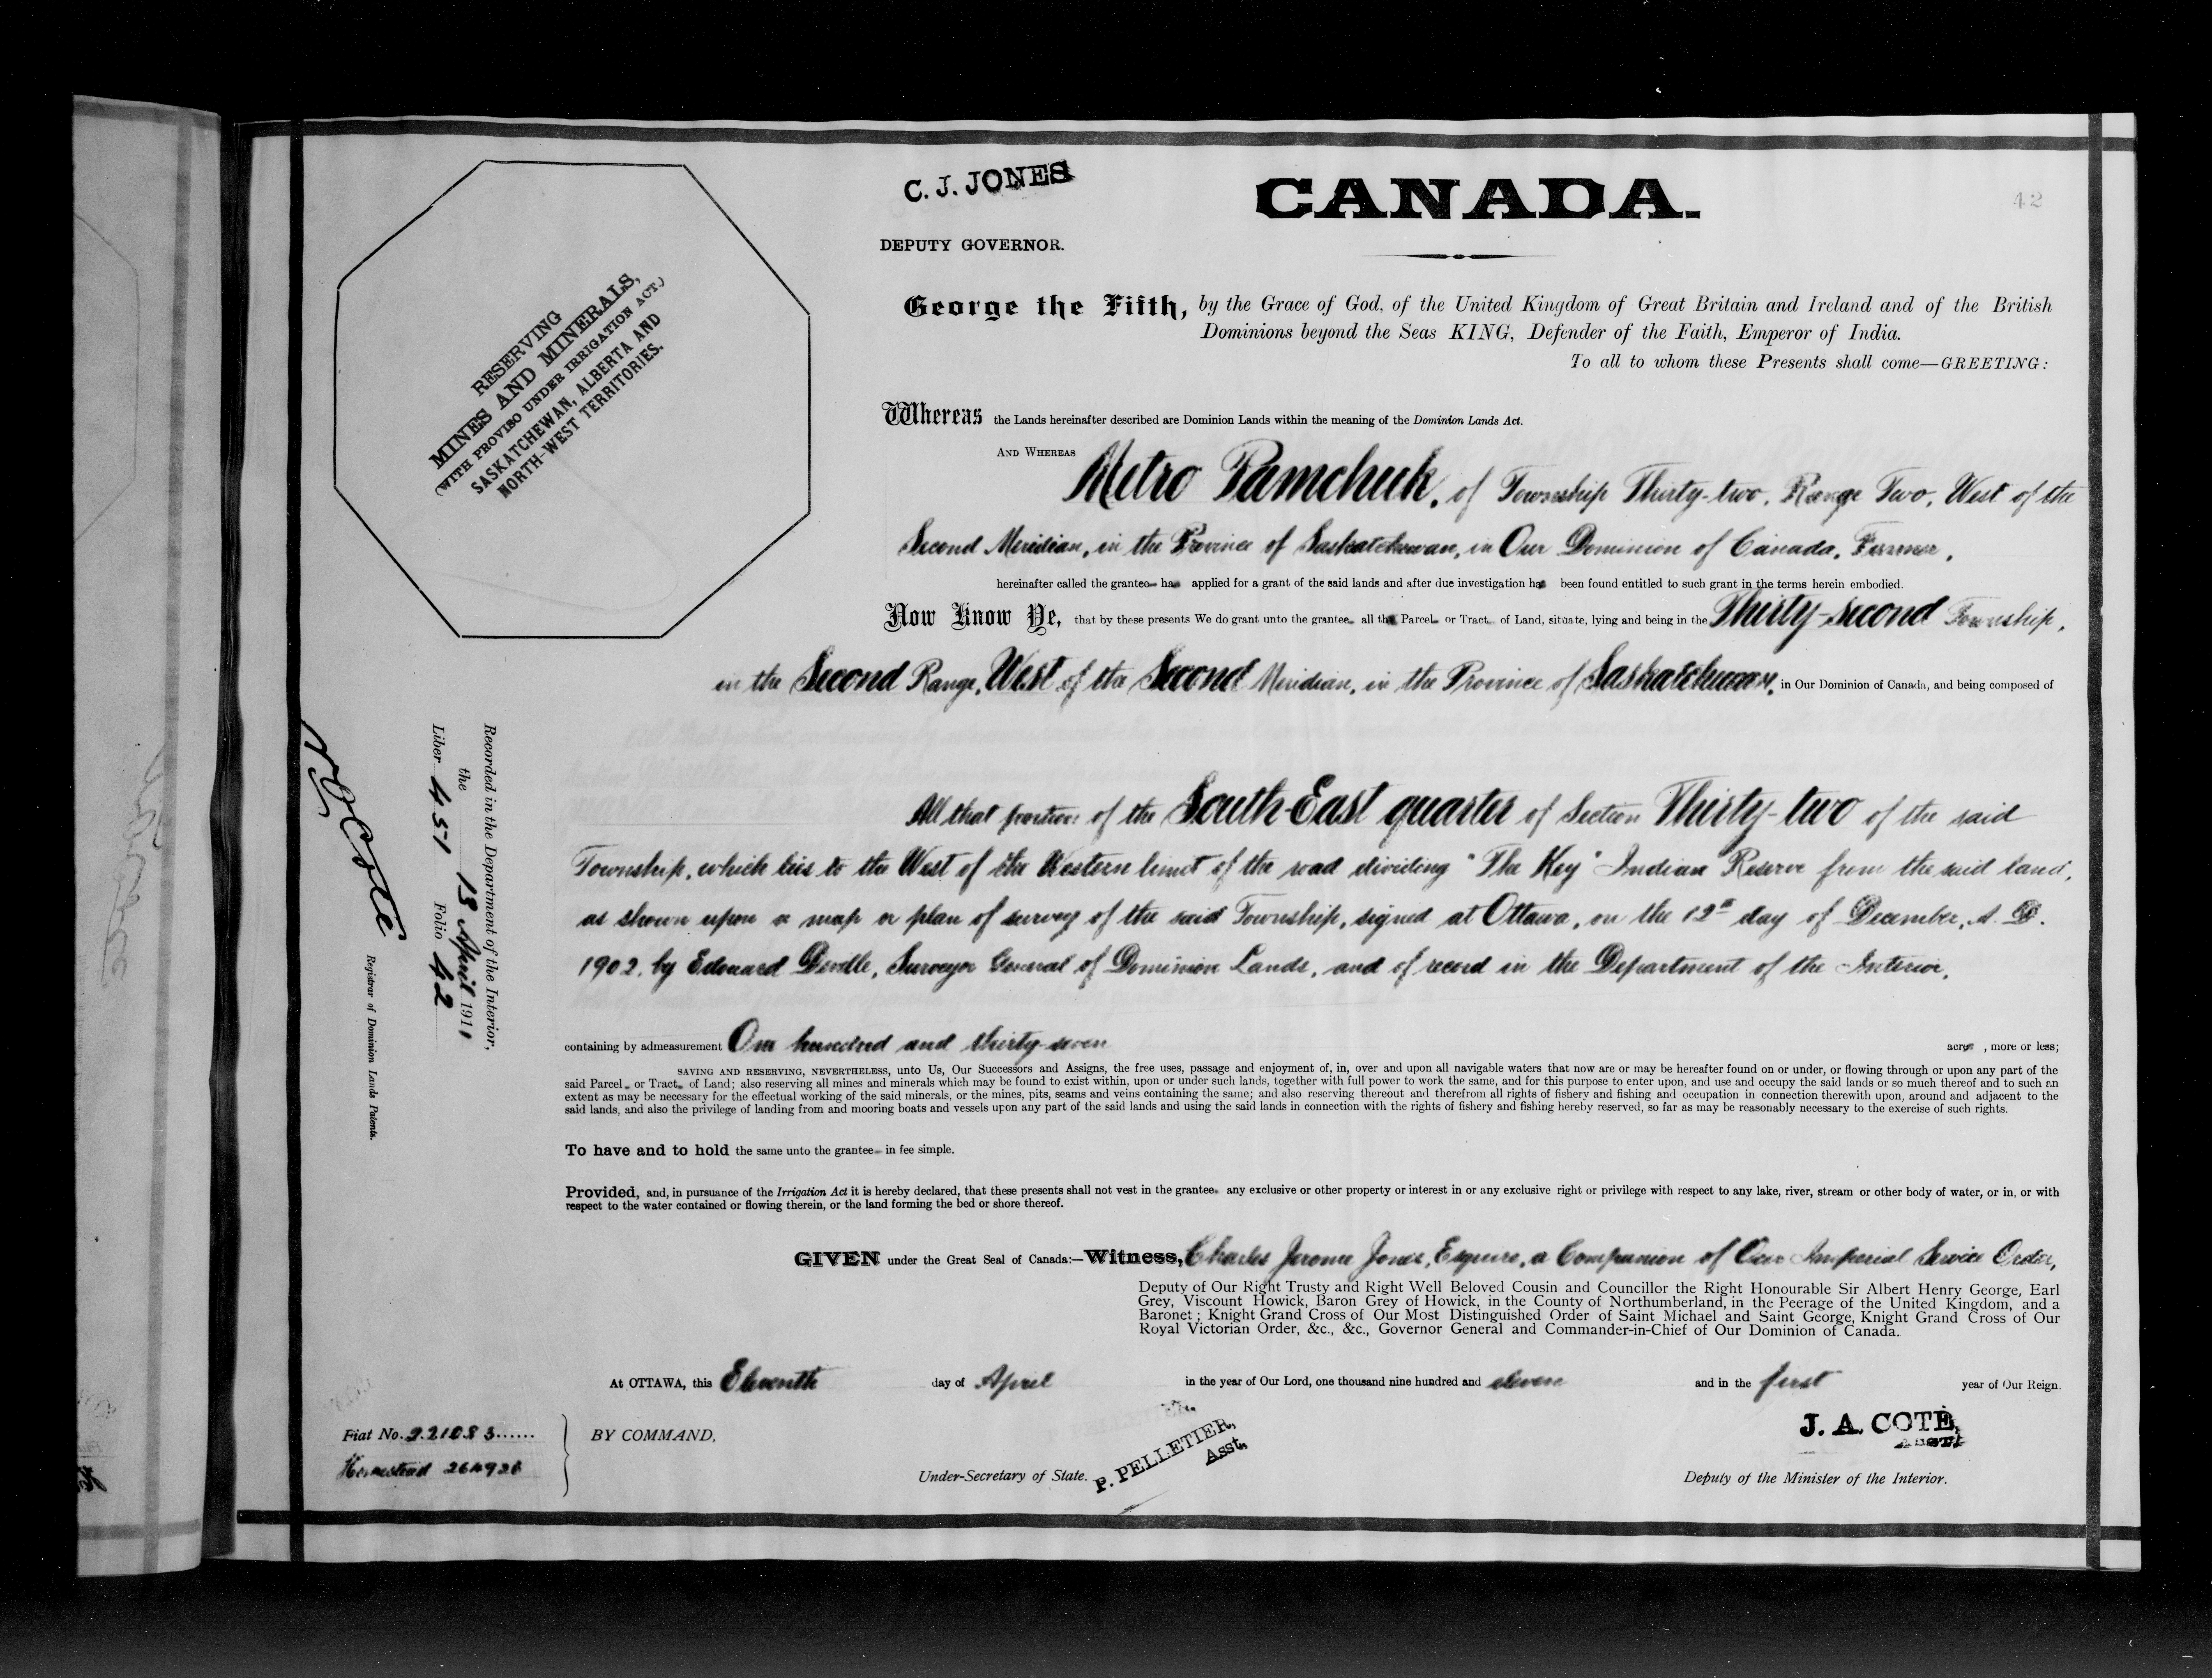 C. J. JONES
CANADA.
42
DEPUTY GOVERNOR.
RESERVING
MINES AND MINERALS,
(WITH PROVISO UNDER IRRIGATION ACT.)
SASKATCHEWAN, ALBERTA AND
NORTH-WEST TERRITORIES.
George the Fifth, by the Grace of God, of the United Kingdom of Great Britain and Ireland and of the British
Dominions beyond the Seas KING, Defender of the Faith, Emperor of India.
To all to whom these Presents shall come—GREETING:
Whereas the Lands hereinafter described are Dominion Lands within the meaning of the Dominion Lands Act.
AND WHEREAS Metro Pamchuk, of Township Thirty-two, Range Two, West of the
Second Meridian, in the Province of Saskatchewan, in Our Dominion of Canada, Farmer,
hereinafter called the grantee has applied for a grant of the said lands and after due investigation has been found entitled to such grant in the terms herein embodied.
Now Know Ye, that by these presents We do grant unto the grantee all that Parcel or Tract of Land, situate, lying and being in the Thirty-second Township,
in the Second Range, West of the Second Meridian, in the Province of Saskatchewan, in Our Dominion of Canada, and being composed of
All that portion of the South-East quarter of Section Thirty-two of the said
Township, which lies to the West of the Western limit of the road dividing "The Key" Indian Reserve from the said land,
as shown upon a map or plan of survey of the said Township, signed at Ottawa, on the 12th day of December, A. D.
1902, by Edouard Deville, Surveyor General of Dominion Lands, and of record in the Department of the Interior,
containing by admeasurement One hundred and thirty-seven acres, more or less;
SAVING AND RESERVING, NEVERTHELESS, unto Us, Our Successors and Assigns, the free uses, passage and enjoyment of, in, over and upon all navigable waters that now are or may be hereafter found on or under, or flowing through or upon any part of the
said Parcel or Tract of Land; also reserving all mines and minerals which may be found to exist within, upon or under such lands, together with full power to work the same, and for this purpose to enter upon, and use and occupy the said lands or so much thereof and to such an
extent as may be necessary for the effectual working of the said minerals, or the mines, pits, seams and veins containing the same; and also reserving thereout and therefrom all rights of fishery and fishing and occupation in connection therewith upon, around and adjacent to the
said lands, and also the privilege of landing from and mooring boats and vessels upon any part of the said lands and using the said lands in connection with the rights of fishery and fishing hereby reserved, so far as may be reasonably necessary to the exercise of such rights.
To have and to hold the same unto the grantee in fee simple.
Provided, and, in pursuance of the Irrigation Act it is hereby declared, that these presents shall not vest in the grantee any exclusive or other property or interest in or any exclusive right or privilege with respect to any lake, river, stream or other body of water, or in, or with
respect to the water contained or flowing therein, or the land forming the bed or shore thereof.
GIVEN under the Great Seal of Canada:—Witness, Charles Jerome Jones, Esquire, a Companion of Our Imperial Service Order,
Deputy of Our Right Trusty and Right Well Beloved Cousin and Councillor the Right Honourable Sir Albert Henry George, Earl
Grey, Viscount Howick, Baron Grey of Howick, in the County of Northumberland, in the Peerage of the United Kingdom, and a
Baronet; Knight Grand Cross of Our Most Distinguished Order of Saint Michael and Saint George, Knight Grand Cross of Our
Royal Victorian Order, &c., &c., Governor General and Commander-in-Chief of Our Dominion of Canada.
At OTTAWA, this Eleventh day of April in the year of Our Lord, one thousand nine hundred and eleven and in the first year of Our Reign.
BY COMMAND,
Under-Secretary of State.
P. PELLETIER,
Asst.
J. A. COTE,
Asst.
Deputy of the Minister of the Interior.
Fiat No. 221083
Homestead 264926
Recorded in the Department of the Interior,
the 13 April 1911
Liber 451 Folio 42
N O Coté
Registrar of Dominion Lands Patents.